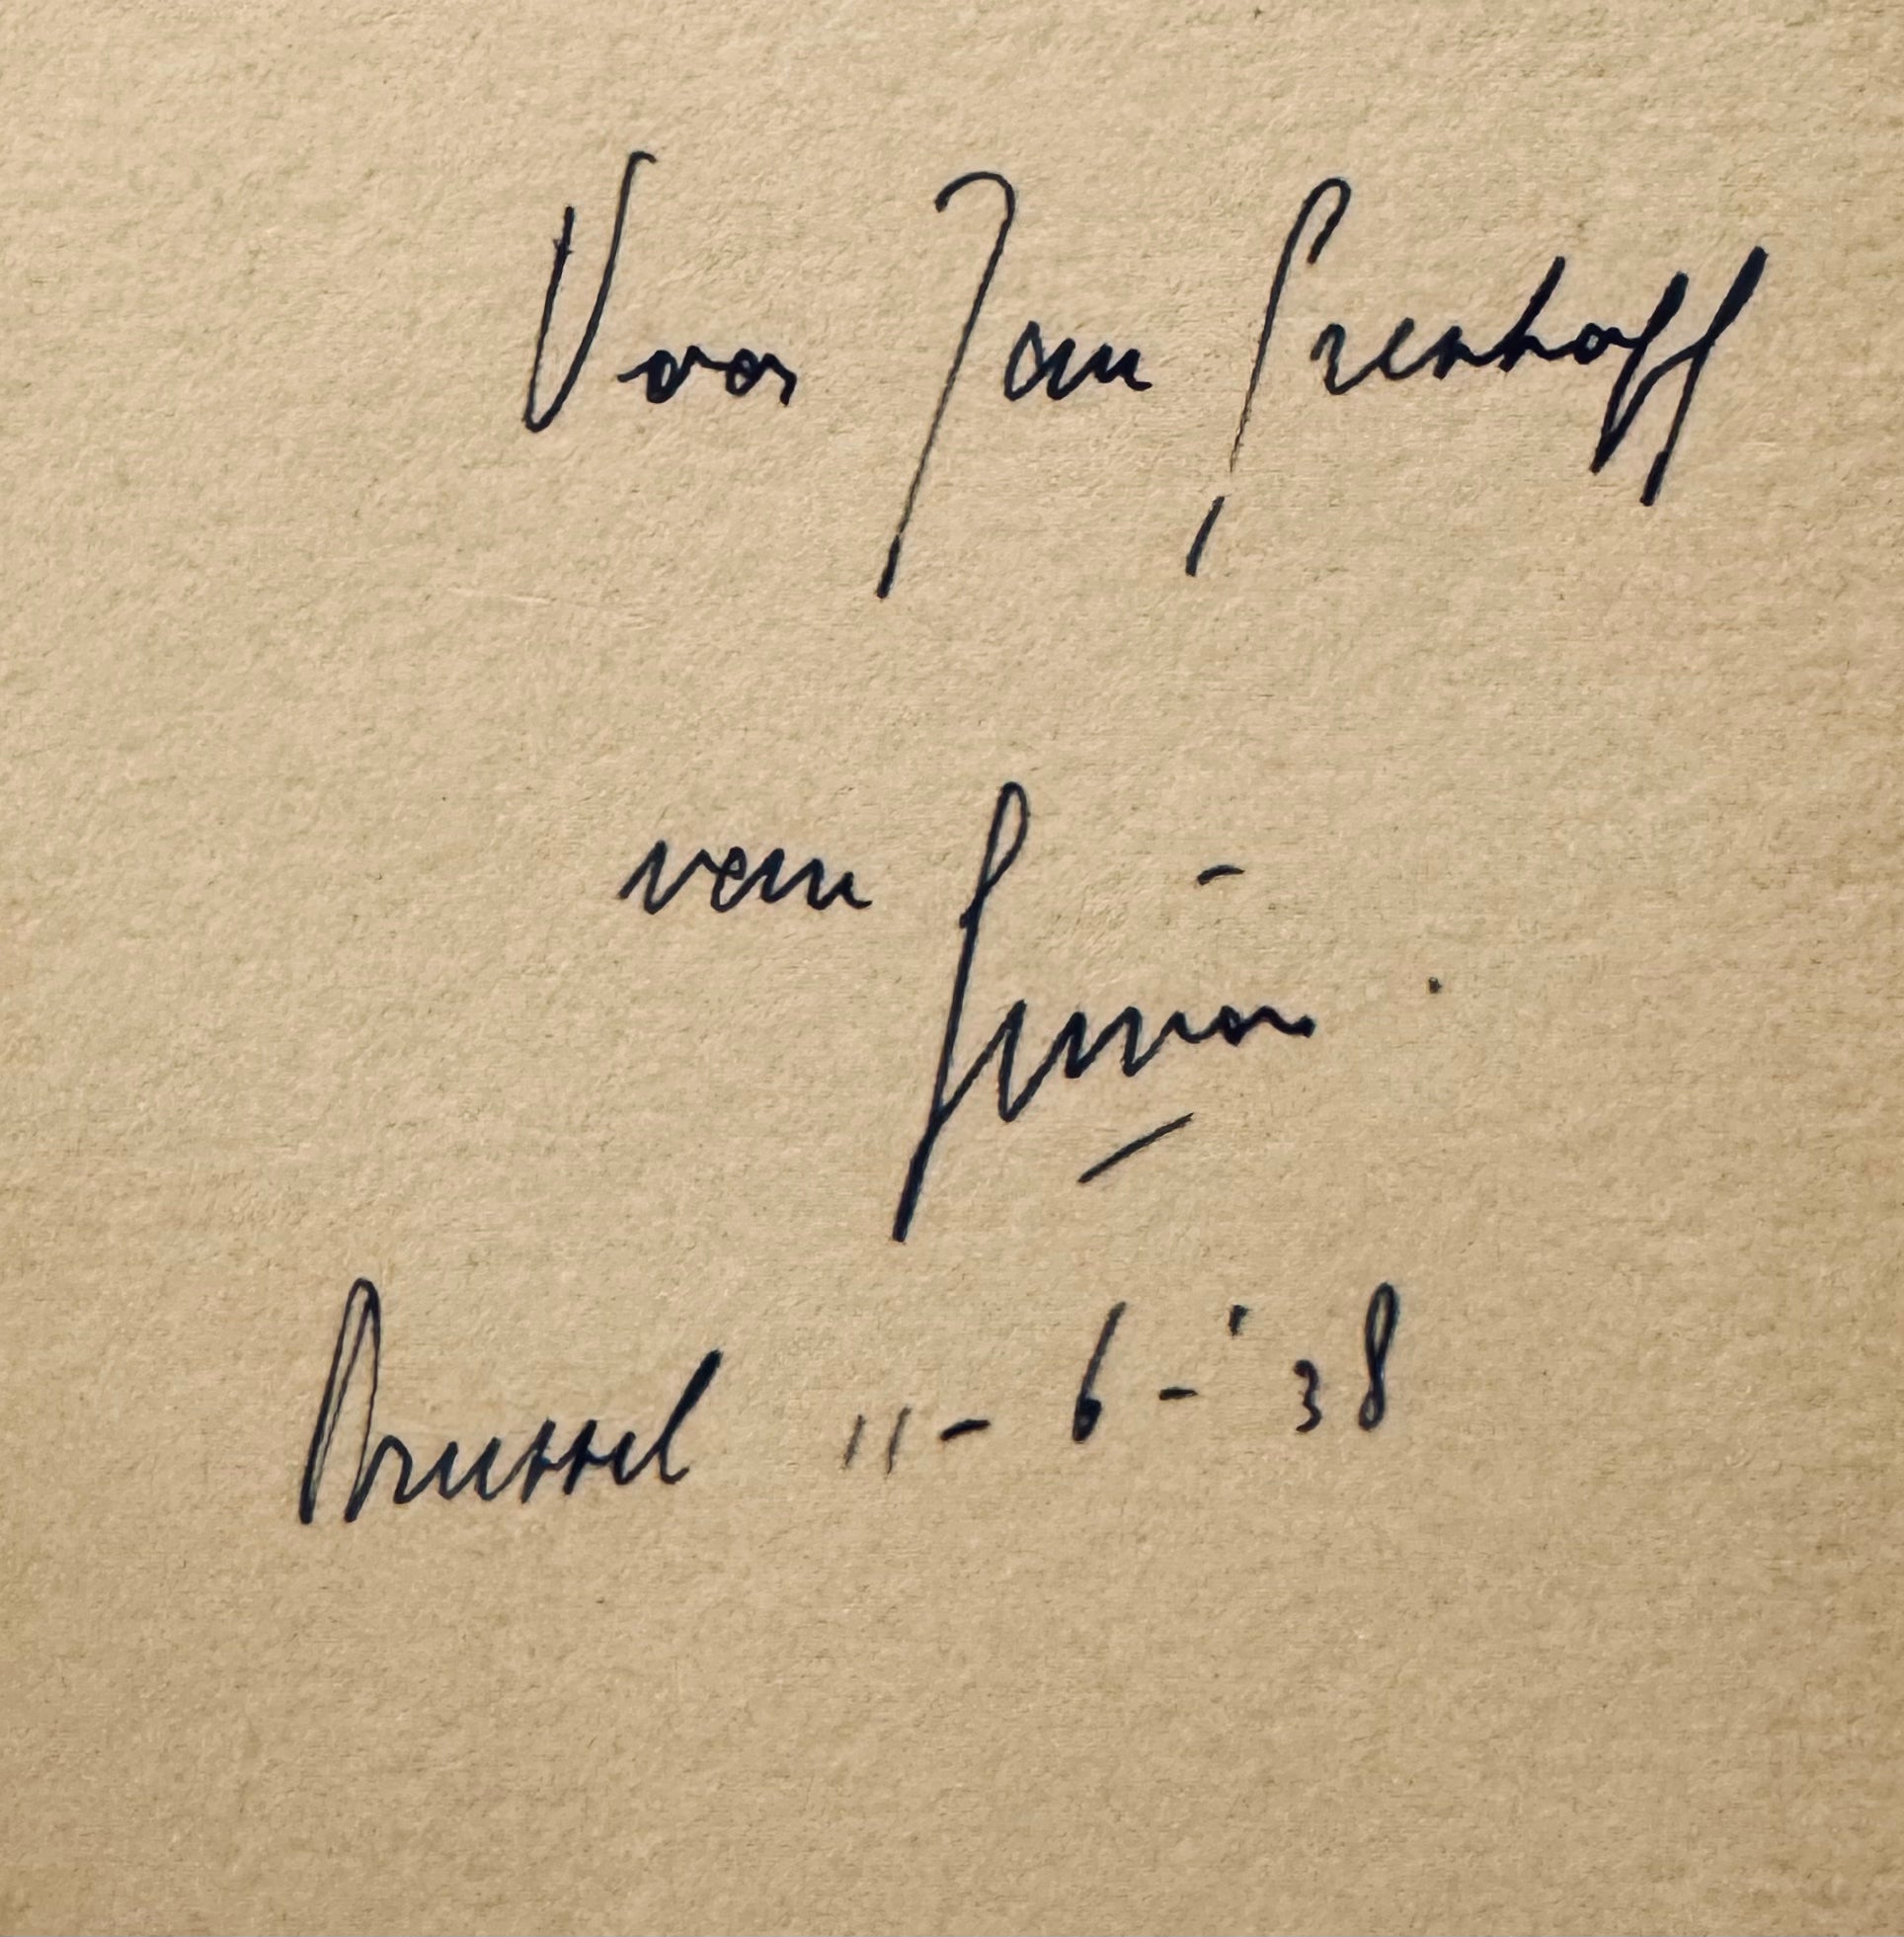 Voor Jan Grenhoff
van Simon
Brussel 11-6-'38